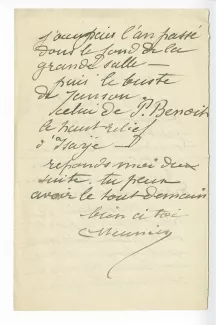 j'occupais l'an passé
dans le fond de la
grande salle —
puis le buste
de Janson
celui de P. Benoit
le haut relief
d'Isaÿe —
reponds moi de
suite. tu peux
avoir le tout demain
bien à toi
CMeunier